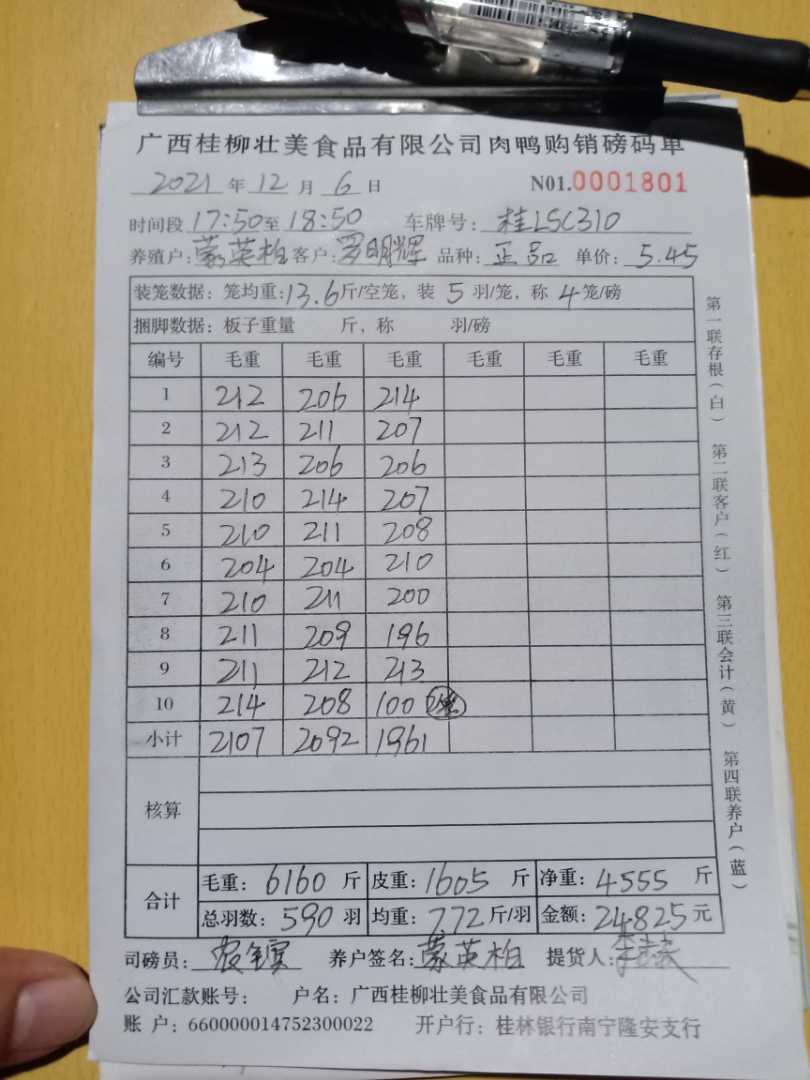 广西桂柳壮美食品有限公司肉鸭购销磅码单
2021 年 12 月 6 日 N01.0001801
时间段 17:50 至 18:50 车牌号: 桂LSC310
养殖户: 蒙英柏 客户: 罗明辉 品种: 正品 单价: 5.45
装笼数据: 笼均重: 13.6 斤/空笼, 装 5 羽/笼, 称 4 笼/磅
捆脚数据: 板子重量 斤, 称 羽/磅
编号 毛重 毛重 毛重 毛重 毛重 毛重
1 212 206 214
2 212 211 207
3 213 206 206
4 210 214 207
5 210 211 208
6 204 204 210
7 210 211 200
8 211 209 196
9 211 212 213
10 214 208 100
小计 2107 2092 1961
核算
合计
毛重: 6160 斤 皮重: 1605 斤 净重: 4555 斤
总羽数: 590 羽 均重: 772 斤/羽 金额: 24825 元
司磅员: 养户签名: 蒙英柏 提货人:
公司汇款账号: 户名: 广西桂柳壮美食品有限公司
账 户: 660000014752300022 开户行: 桂林银行南宁隆安支行
第一联存根(白) 第二联客户(红) 第三联会计(黄) 第四联养户(蓝)